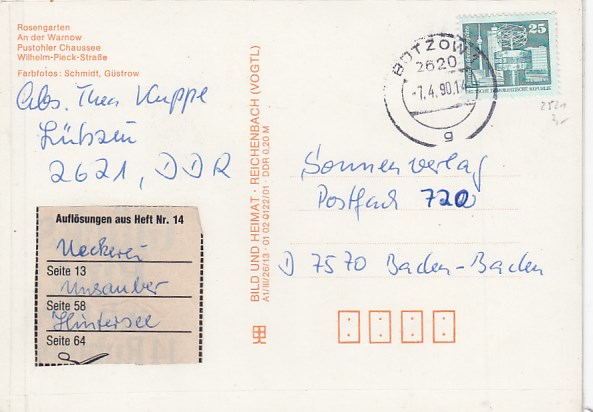 Rosengarten
An der Warnow
Pustohler Chaussee
Wilhelm-Pieck-Straße
Farbfotos: Schmidt, Güstrow
Abs. Thea Kuppe
2621, DDR
Auflösungen aus Heft Nr. 14
Neckerei
Seite 13
Unsauber
Seite 58
Hintersee
Seite 64
BILD UND HEIMAT · REICHENBACH (VOGTL)
A1/III/26/13 · 01 02 0122/01 · DDR 0,20 M
BÜTZOW 1
2620
-7.4.90.14
g
25
Sonnenverlag
Postfach 720
D 7570 Baden-Baden